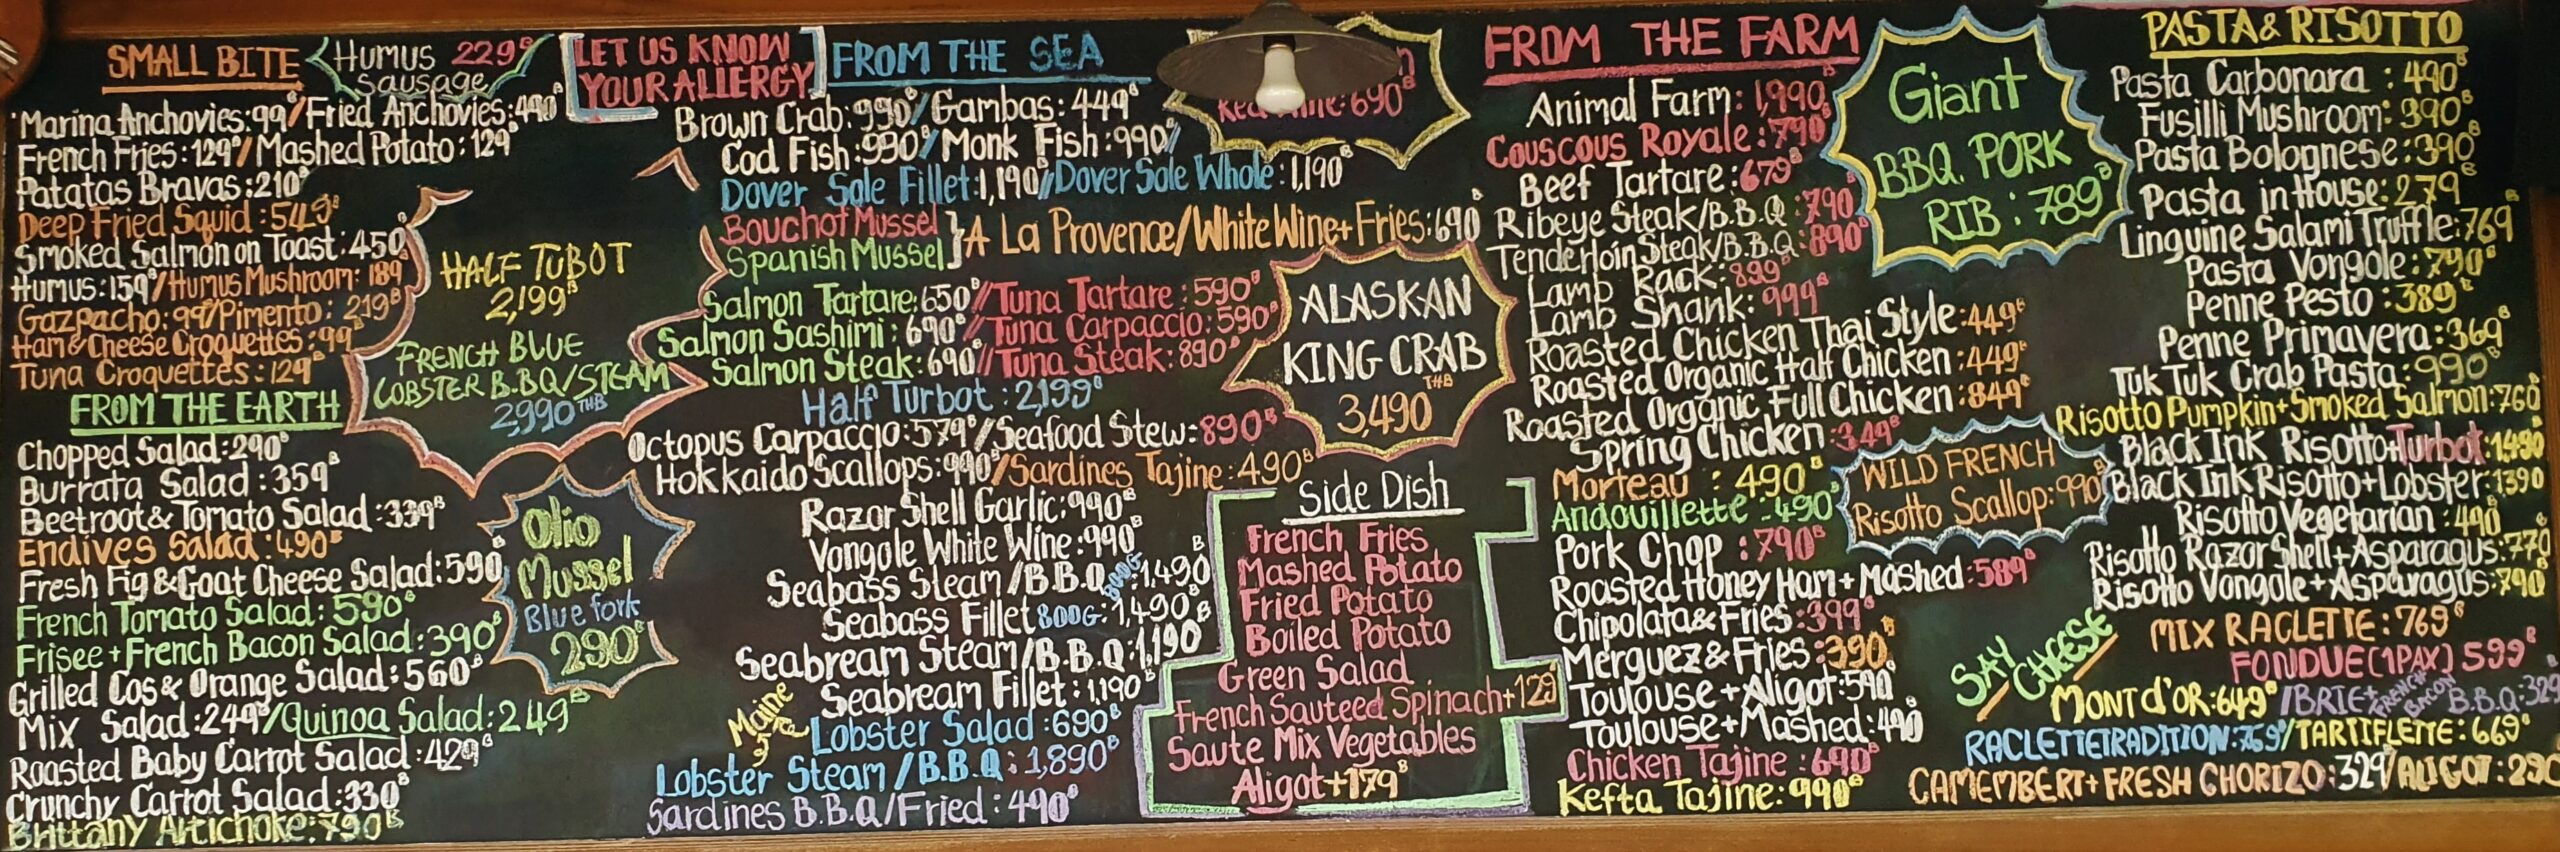 SMALL BITE
HUMUS 229฿
Sausage
Marina Anchovies:99฿/Fried Anchovies:490฿
French Fries:129฿/Mashed Potato:129฿
Patatas Bravas:210฿
Deep Fried Squid:549฿
Smoked Salmon on Toast:450฿
Humus:159฿/Humus Mushroom:189
Gazpacho:99฿/Pimento:219฿
Ham&Cheese Croquettes:99฿
Tuna Croquettes:129฿
FROM THE EARTH
Chopped Salad:290฿
Burrata Salad:359฿
Beetroot&Tomato Salad:339฿
Endives Salad:490฿
Fresh Fig&Goat Cheese Salad:590
French Tomato Salad:590฿
Frisee+French Bacon Salad:390฿
Grilled Cos & Orange Salad:560฿
Mix Salad:249฿/Quinoa Salad:249฿
Roasted Baby Carrot Salad:429฿
Crunchy Carrot Salad:330฿
Brittany Artichoke:790฿
HALF TUBOT
2,199฿
FRENCH BLUE
LOBSTER B.BQ/STEAM
2,990THB
Olio
Mussel
Blue fork
290฿
LET US KNOW
YOUR ALLERGY
FROM THE SEA
Brown Crab:990฿/Gambas:449฿
Cod Fish:990฿/Monk Fish:990฿/
Dover Sole Fillet:1,190฿//Dover Sole Whole:1,190฿
Bouchot Mussel
Spanish Mussel
}A La Provence/White Wine+Fries:690฿
Salmon Tartare:650฿//Tuna Tartare:590฿
Salmon Sashimi:690฿//Tuna Carpaccio:590฿
Salmon Steak:690฿//Tuna Steak:890฿
Half Turbot:2,199฿
Octopus Carpaccio:579฿/Seafood Stew:890฿
Hokkaido Scallops:990฿/Sardines Tajine:490฿
Razor Shell Garlic:990฿
Vongole White Wine:990฿
Seabass Steam/B.B.Q 800G:1,490฿
Seabass Fillet 800G:1,490฿
Seabream Steam/B.B.Q:1,190฿
Seabream Fillet:1,190฿
Maine
Lobster Salad:690฿
Lobster Steam/B.B.Q:1,890฿
Sardines B.B.Q/Fried:490฿
:690฿
ALASKAN
KING CRAB
THB
3,490
Side Dish
French Fries
Mashed Potato
Fried Potato
Boiled Potato
Green Salad
French Sauteed Spinach+129
Saute Mix Vegetables
Aligot+179฿
FROM THE FARM
Animal Farm:1,990฿
Couscous Royale:790฿
Beef Tartare:679฿
Ribeye Steak/B.B.Q:790฿
Tenderloin Steak/B.B.Q:890฿
Lamb Rack:899฿
Lamb Shank:999฿
Roasted Chicken Thai Style:449฿
Roasted Organic Half Chicken:449฿
Roasted Organic Full Chicken:849฿
Spring Chicken:349฿
Morteau:490฿
Andouillette-490฿
Pork Chop:790฿
Roasted Honey Ham+Mashed:589฿
Chipolata&Fries:399฿
Merguez&Fries:390฿
Toulouse+Aligot:590฿
Toulouse+Mashed:490
Chicken Tajine:690฿
Kefta Tajine:990฿
Giant
BBQ. PORK
RIB:789฿
WILD FRENCH
Risotto Scallop:990฿
PASTA& RISOTTO
Pasta Carbonara:490฿
Fusilli Mushroom:390฿
Pasta Bolognese:390฿
Pasta in House:279฿
Linguine Salami Truffle:769฿
Pasta Vongole:790฿
Penne Pesto:389฿
Penne Primavera:369฿
Tuk Tuk Crab Pasta:990฿
Risotto Pumpkin+Smoked Salmon:760฿
Black Ink Risotto+Turbot:1490
Black Ink Risotto+Lobster:1390
Risotto Vegetarian:490฿
Risotto Razor Shell+Asparagus:770
Risotto Vongole+Asparagus:790฿
SAY
CHEESE
MIX RACLETTE:769฿
FONDUE(1PAX) 599฿
MONT d'OR:649฿/BRIE+FRENCH BACON B.B.Q:329
RACLETTETRADITION:769฿/TARTIFLETTE:669฿
CAMEMBERT+FRESH CHORIZO:329/ALIGOT:290